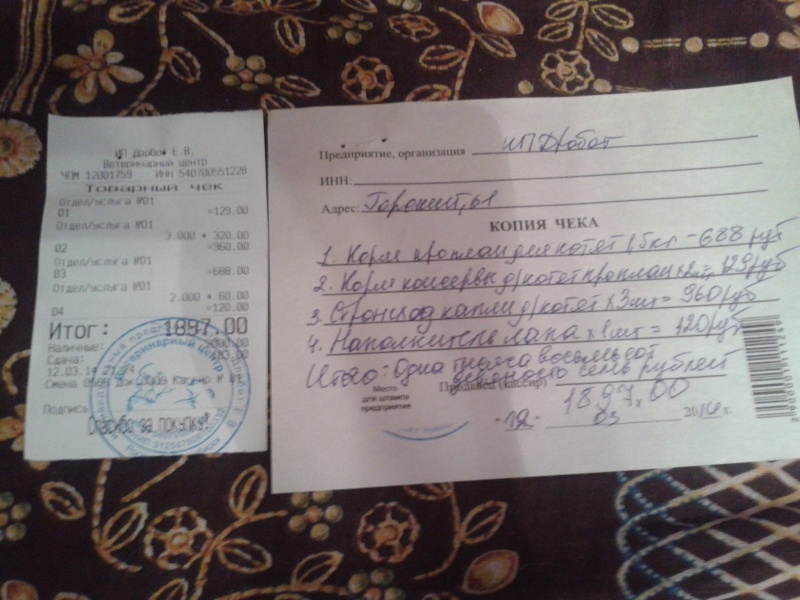 ИП Дробот Е.В.
Ветеринарный центр
ЧПМ 12001759 ИНН 540700551228
Товарный чек
Отдел/услуга №01
01 =129.00
Отдел/услуга №01
3.000 * 320.00
02 =960.00
Отдел/услуга №01
03 =688.00
Отдел/услуга №01
2.000 * 60.00
04 =120.00
Итог: 1897.00
Наличные:
Сдача:
12.03.14
Смена Док. Кассир № 01
Подпись
Спасибо за покупку!
Ветеринарный центр
Предприятие, организация ИП Дробот
ИНН:
Адрес: Горский, 61
КОПИЯ ЧЕКА
1. Корм проплан для котят 1,5 кг - 688 руб
2. Корм консервы д/котят проплан 129 руб
3. Стронгхолд капли д/котят х 3 шт = 960 руб
4. Наполнитель лапа = 120 руб
Итого: Одна тысяча восемьсот
девяносто семь рублей
Продавец (кассир)
1897,00
Место
для штампа
предприятия
03 2014 г.